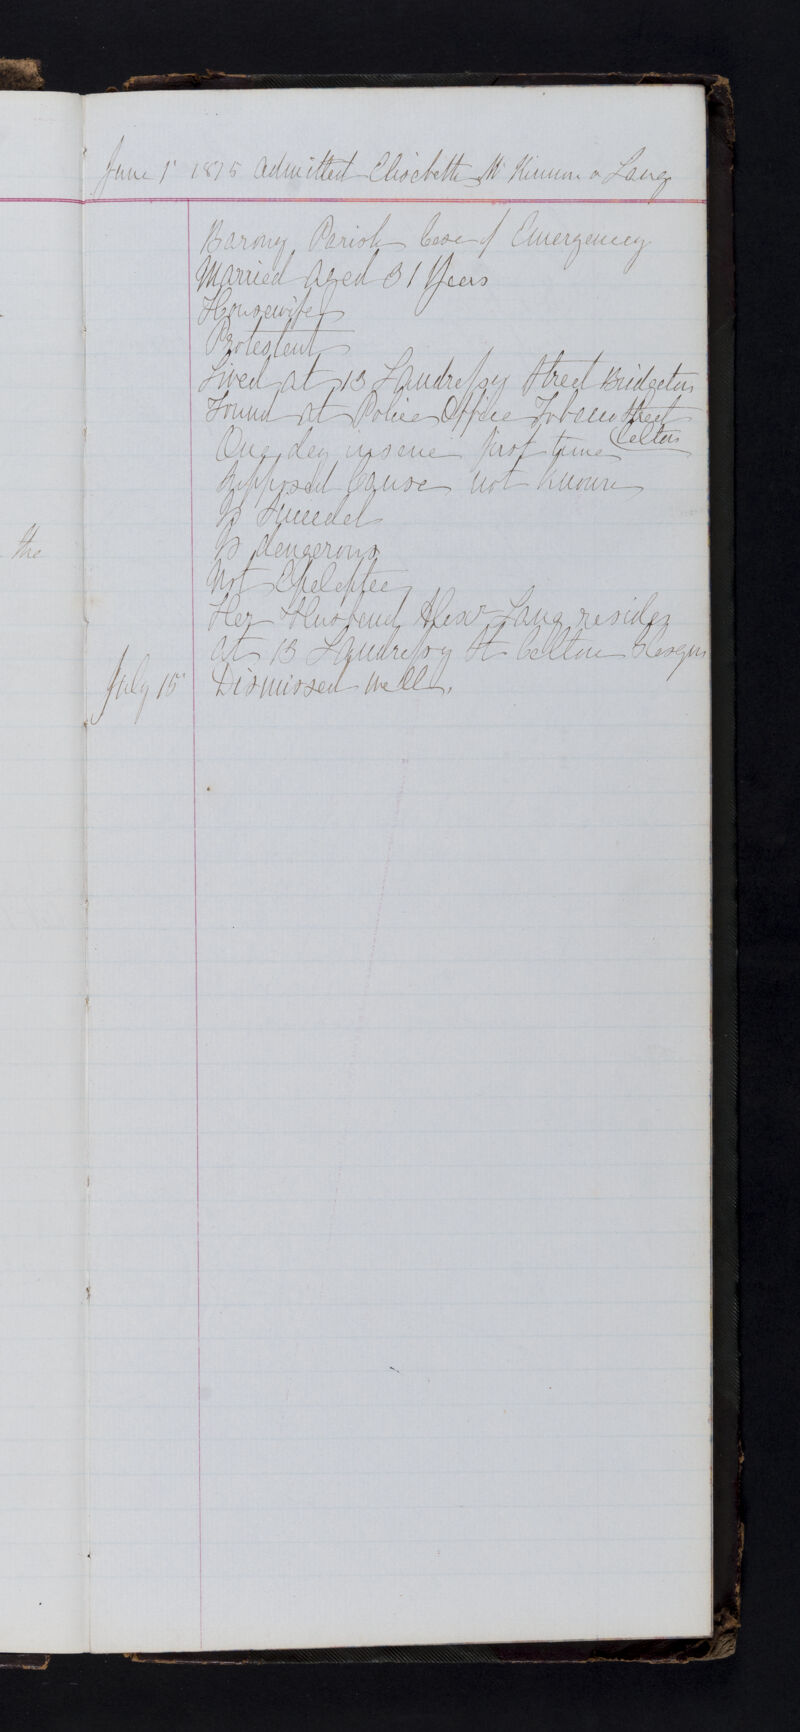 June 1st 1875 Admitted Elisabeth Mc Kinnon or Lang
Barony Parish Case of Emergency
Married aged 31 Years
Housewife
Protestant
Lived at 13 Landressy Street Bridgeton
Found at Police Office Tobago Street
Calton
One day insane first time
Supposed Cause not known
Is Suicidal
Is dangerous
Not Epileptic
Her Husband Alexr Lang resides
at 13 Landressy St Calton Glasgow
July 15 Dismissed well.
the